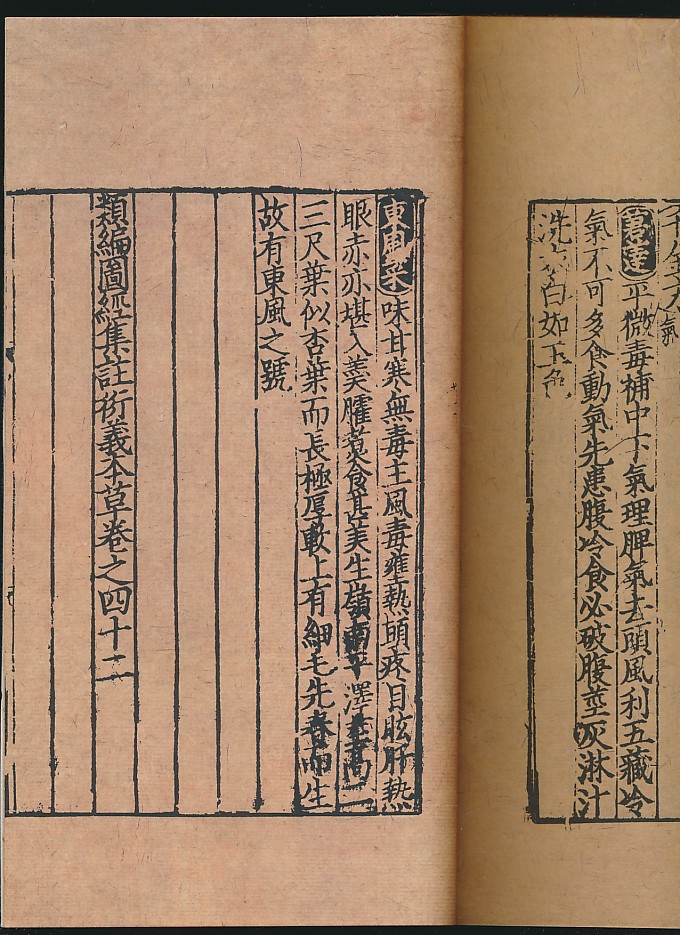 莙薘平微毒補中下氣理脾氣去頭風利五藏冷
氣不可多食動氣先患腹冷食必破腹莖灰淋汁
洗衣白如玉色
東風菜味甘寒無毒主風毒壅熱頭疼目眩肝熱
眼赤亦堪入羹臛煑食甚美生嶺南平澤莖高二
三尺葉似杏葉而長極厚軟上有細毛先春而生
故有東風之號
類編圖經集註衍義本草卷之四十二